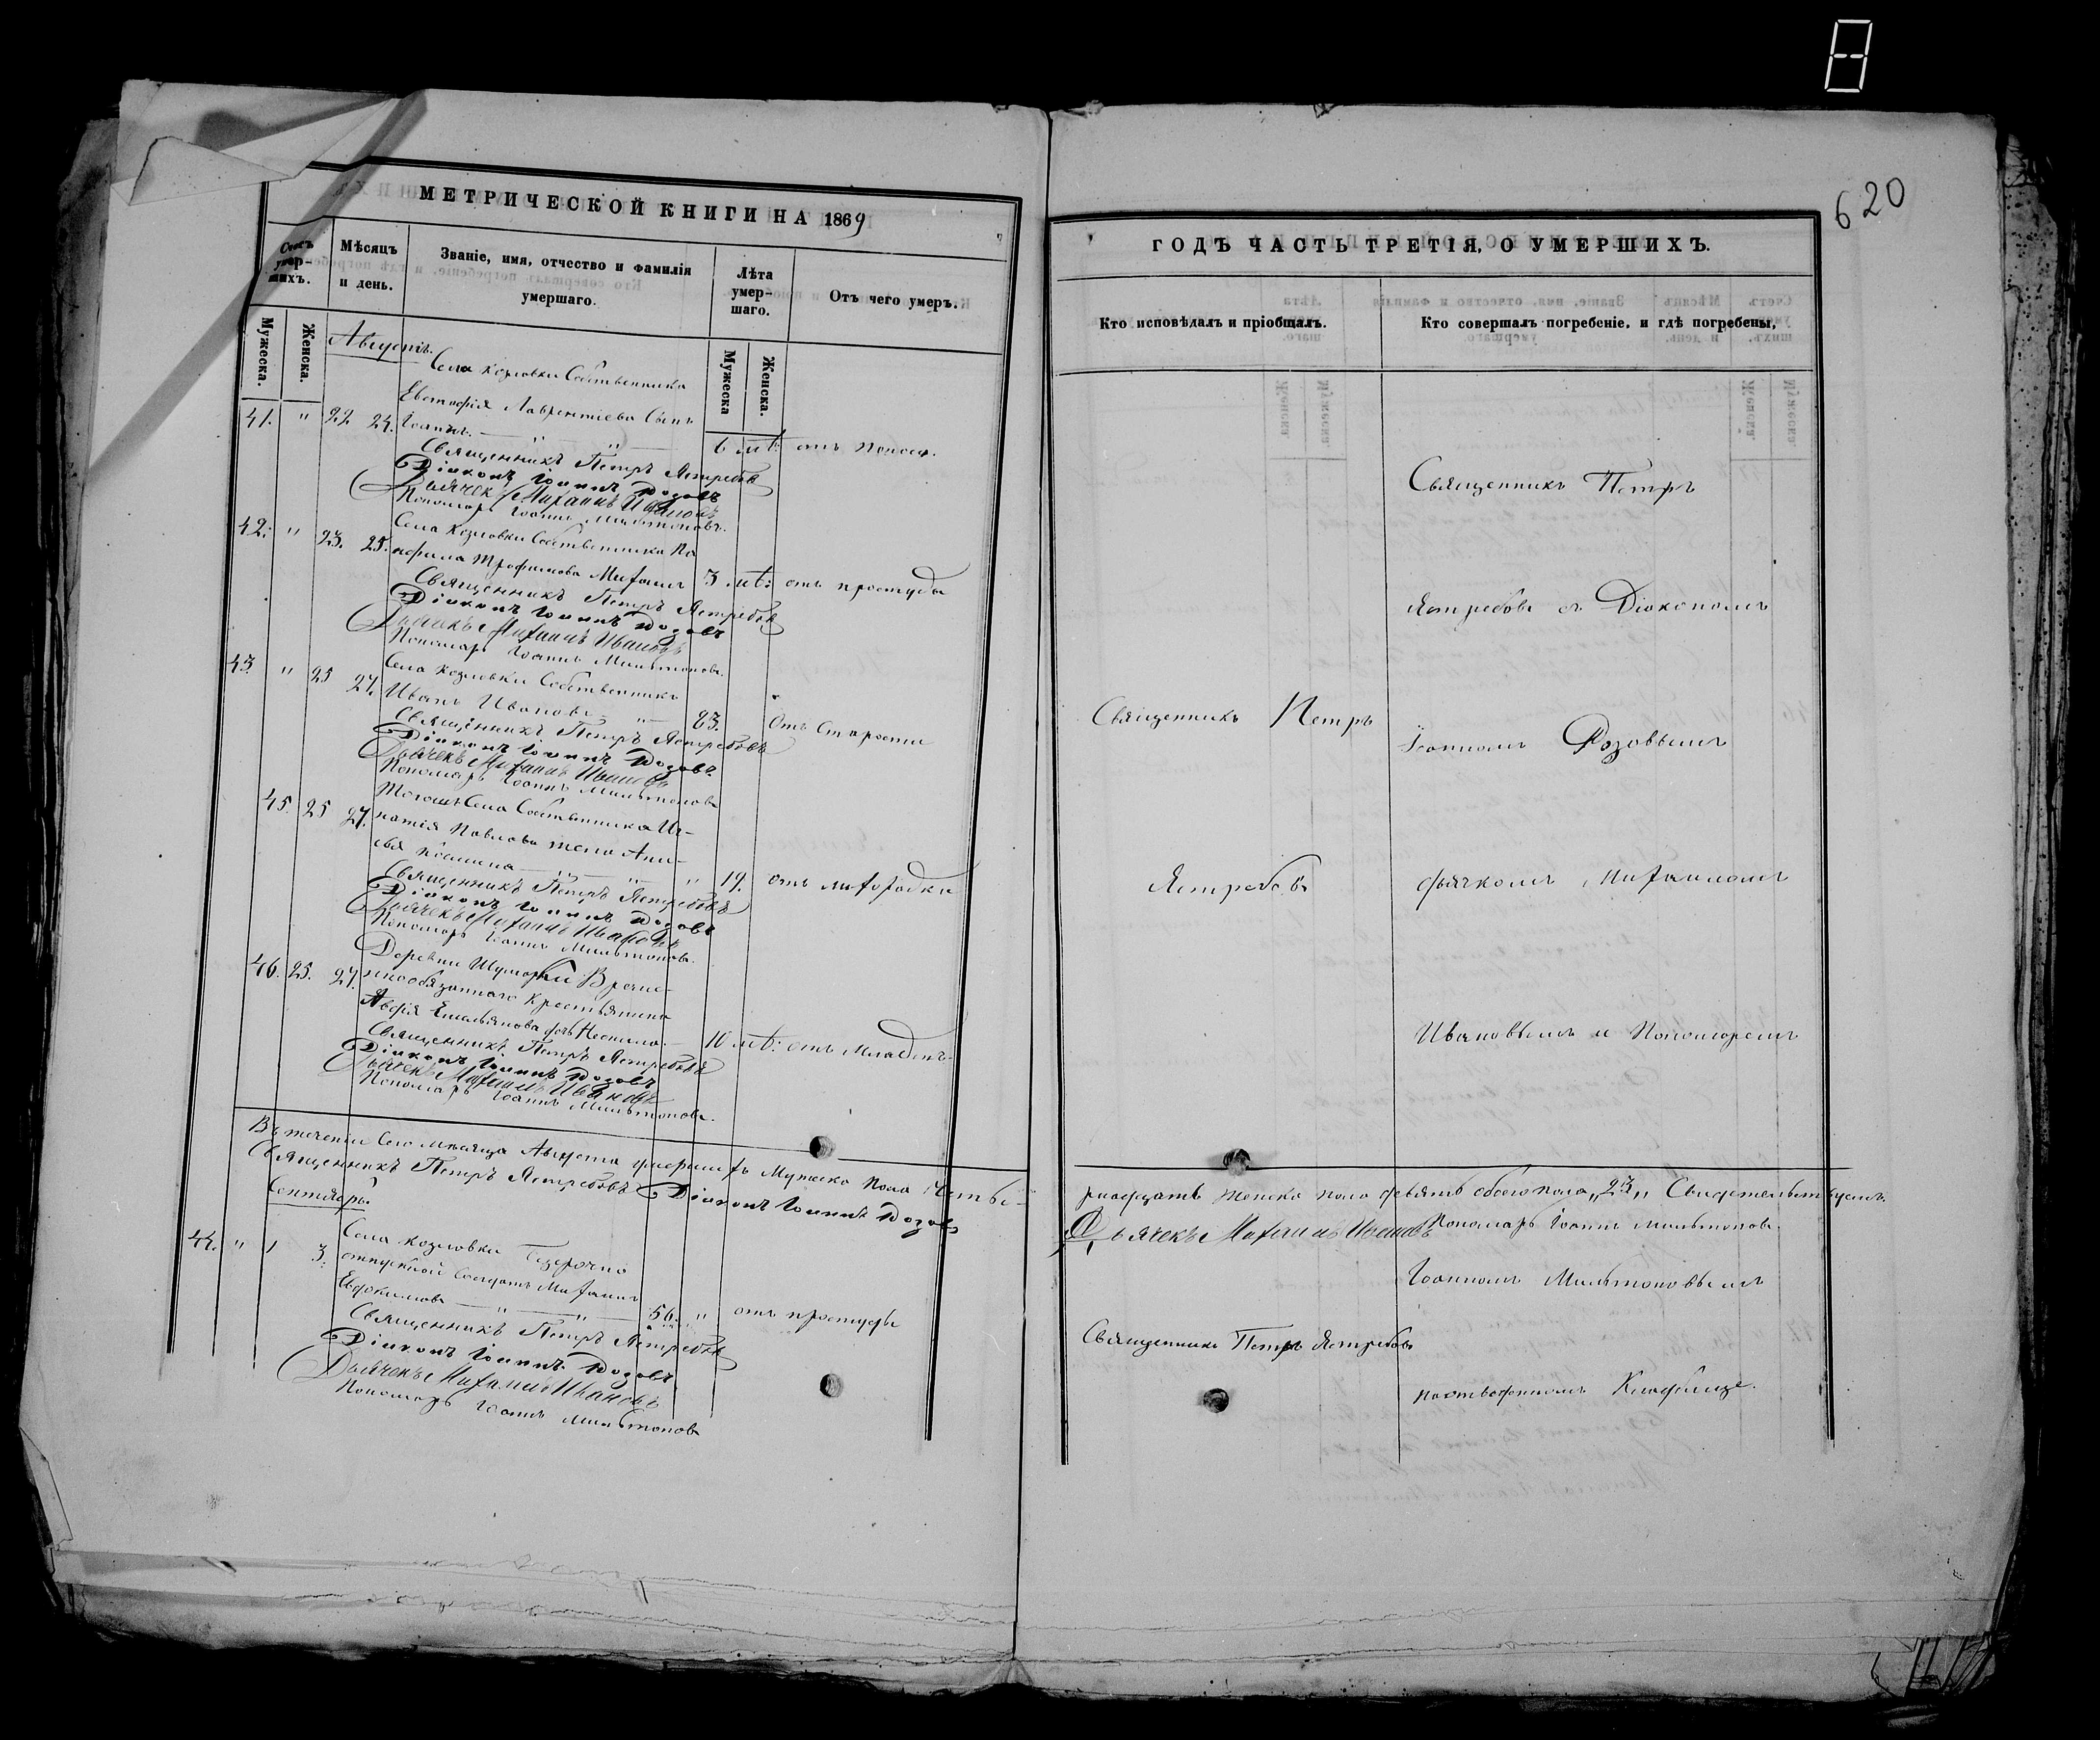 620
МЕТРИЧЕСКОЙ КНИГИ НА 1869
Счетъ умер-
шихъ.
Мѣсяцъ
и день.
Званіе, имя, отчество и фамилія
умершаго.
Лѣта
умер-
шаго.
Отъ чего умеръ.
Мужеска.
Женска.
Мужеска
Женска.
Августъ.
Села Козловки Собственника
Евстафія Лаврентіева Сынъ
41. " 22 24. Іоаннъ. — " — " — 6 лѣт: отъ поноса.
Священникъ Петръ Ястребовъ
Діаконъ Іоаннъ Розовъ
Дьячекъ Михаилъ Ивановъ
Пономарь Іоаннъ Мильтоновъ.
Села Козловки Собственника Па
42. " 23. 25. Трофимова Михаилъ 3 лѣт: отъ простуды
Священникъ Петръ Ястребовъ
Діаконъ Іоаннъ Розовъ
Дьячекъ Михаилъ Ивановъ
Пономарь Іоаннъ Мильтоновъ.
Села Козловки Собственникъ
43. " 25 27. Иванъ Ивановъ " — 83. Отъ Старости
Священникъ Петръ Ястребовъ
Діаконъ Іоаннъ Розовъ
Дьячекъ Михаилъ Ивановъ
Пономарь Іоаннъ Мильтоновъ
Тогожъ Села Собственника Иг-
45. 25 27. натія Павлова жена Ани-
сья — " — " — " 19. отъ лихорадки
Священникъ Петръ Ястребовъ
Діаконъ Іоаннъ Розовъ
Дьячекъ Михаилъ Ивановъ
Пономарь Іоаннъ Мильтоновъ.
Деревни Временно-
46. 25. 27. обязаннаго Крестьянина
Емельянова дочь — 10 лѣт: отъ Младен-
Священникъ Петръ Ястребовъ
Діаконъ Іоаннъ Розовъ
Дьячекъ Михаилъ Ивановъ
Пономарь Іоаннъ Мильтоновъ.
Въ теченіи Сего мѣсяца Августа умершихъ Мужеска Пола Четы-
Священникъ Петръ Ястребовъ Діаконъ Іоаннъ Розовъ
Сентябрь.
Села Козловки Безсрочно
44. " 1 3. отпускной Солдатъ Михаилъ
Евдокимовъ — " — " — 56. " отъ простуды
Священникъ Петръ Ястребовъ
Діаконъ Іоаннъ Розовъ
Дьячекъ Михаилъ Ивановъ
Пономарь Іоаннъ Мильтоновъ
ГОДЪ ЧАСТЬ ТРЕТІЯ, О УМЕРШИХЪ.
Кто исповѣдалъ и пріобщалъ.
Кто совершалъ погребеніе, и гдѣ погребены,
Священникъ Петръ
Ястребовъ съ Діакономъ
Священникъ Петръ
Іоанномъ Розовымъ
Ястребовъ
дьячкомъ Михаиломъ
Ивановымъ и Пономаремъ
рнадцать женска пола девять обоего пола „23„ Свидетельствуемъ.
Дьячекъ Михаилъ Ивановъ Пономарь Іоаннъ Мильтоновъ.
Іоанномъ Мильтоновымъ
Священникъ Петръ Ястребовъ
Кладбище.